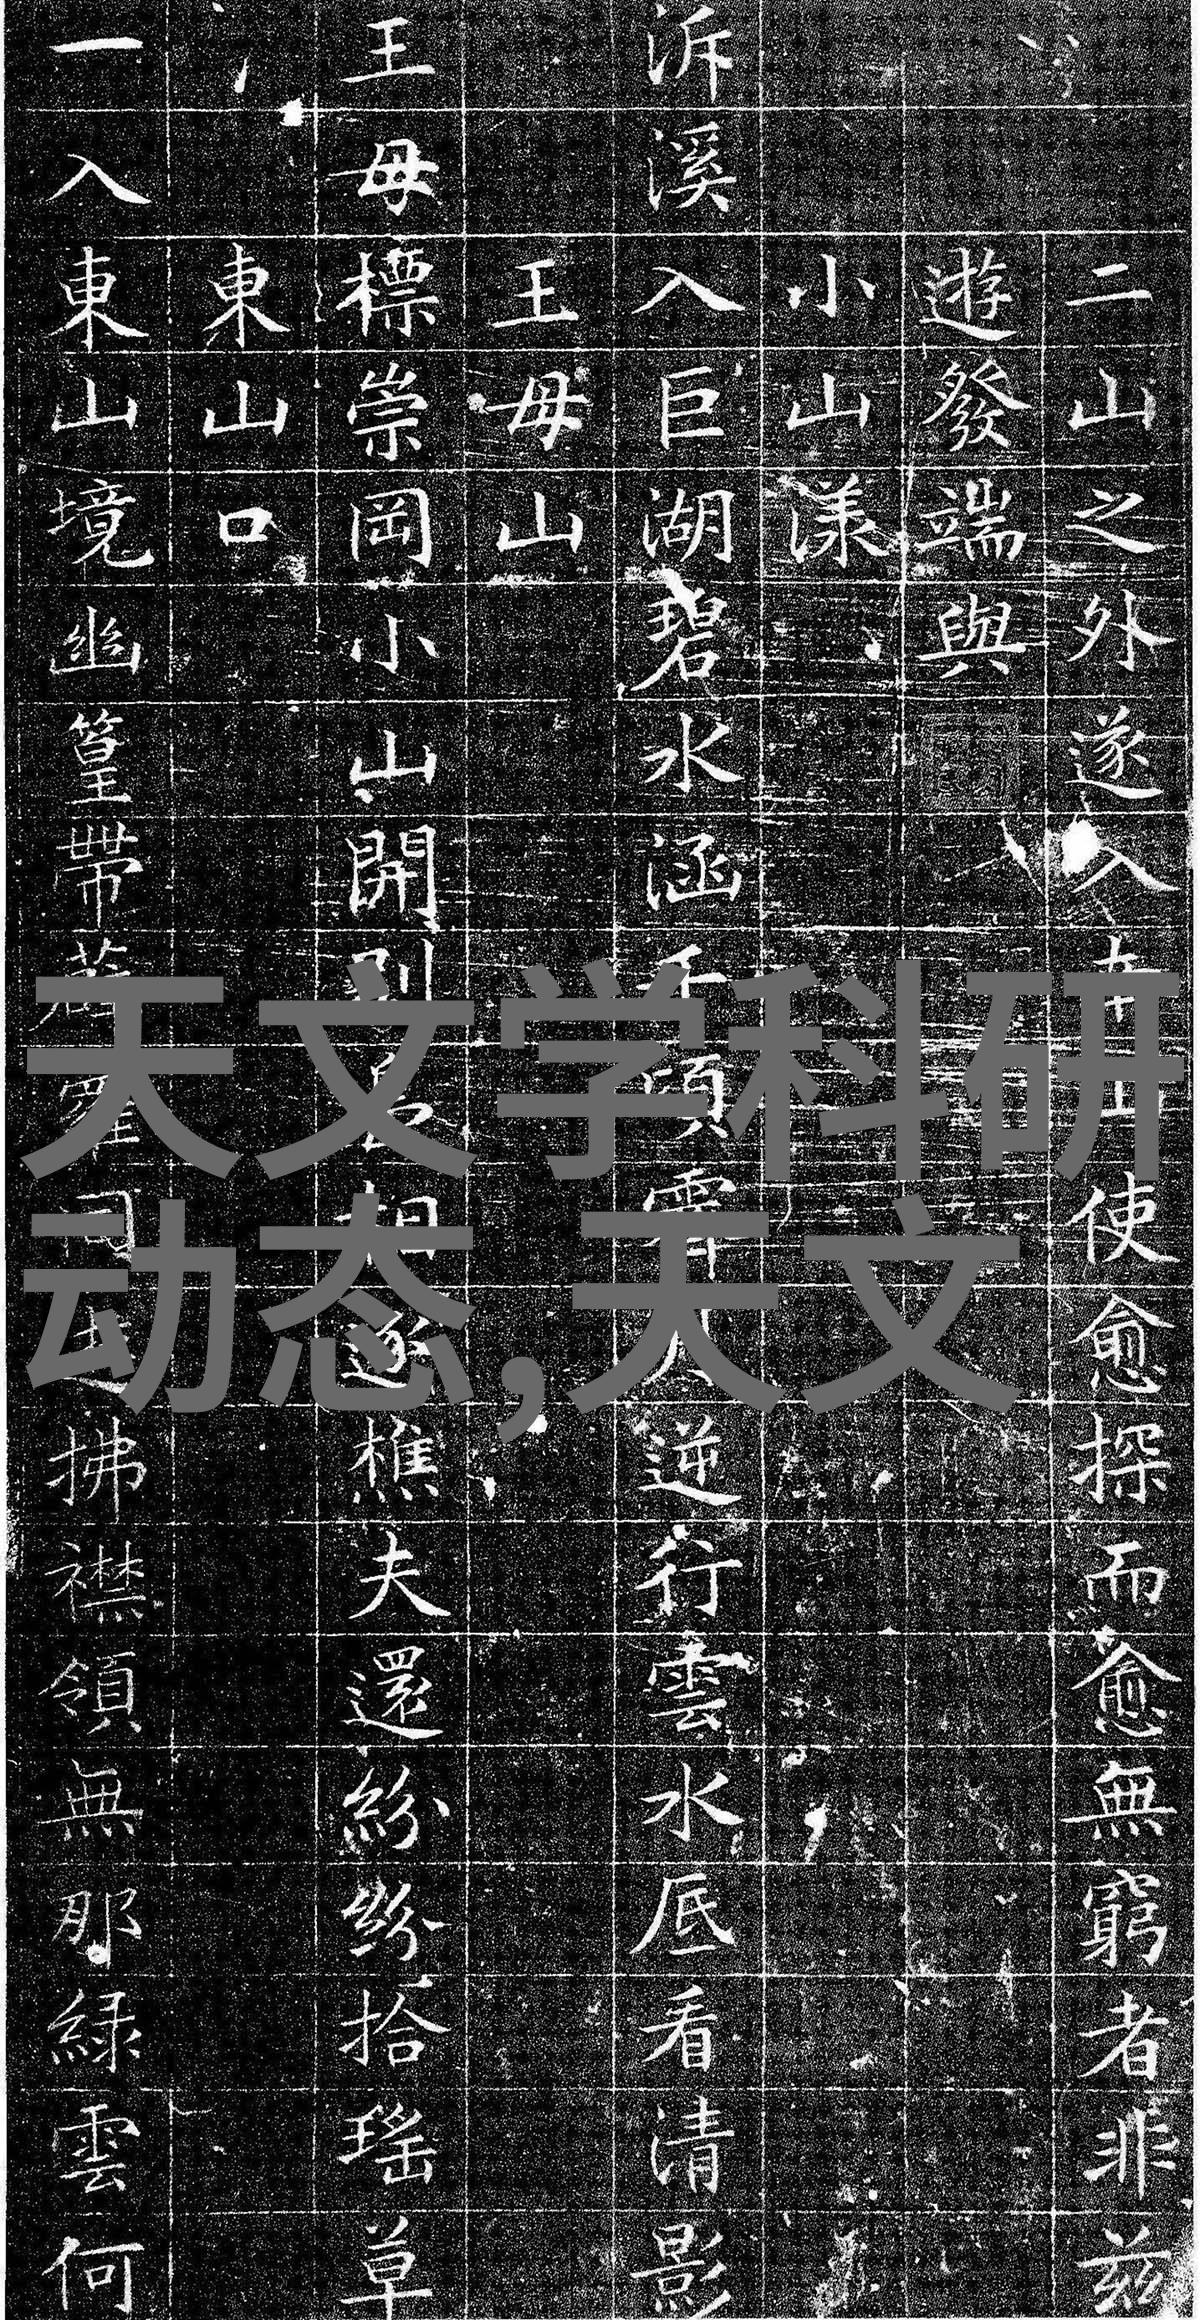 二山之外遂入山使愈探而愈無窮者非茲
遊發端與
小山漾
泝溪入巨湖碧水涵千頃霽人逆行雲水底看清影
王母山
王母標崇岡小山開別相逐樵夫還紛紛拾瑤草
東山口
一入東山境幽篁帶拂襟領無那綠雲何
天文学科研
动态,天文